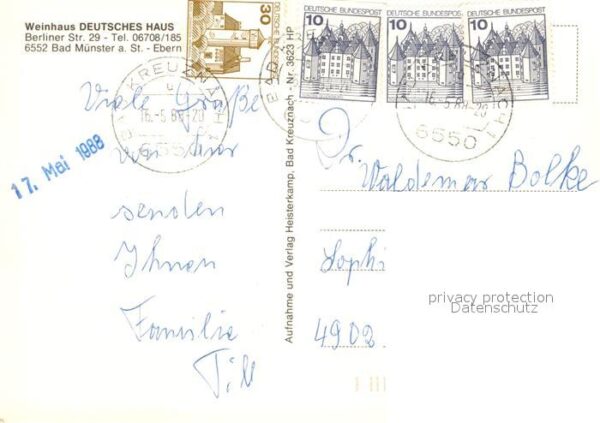 Weinhaus DEUTSCHES HAUS
Berliner Str. 29 - Tel. 06708/185
6552 Bad Münster a. St. - Ebern
30
DEUTSCHE BUNDESPOST
10
DEUTSCHE BUNDESPOST
10
DEUTSCHE BUNDESPOST
10
DEUTSCHE BUNDESPOST
BAD KREUZNACH 1
16.-5.88.-20
6550
16.-5.88.-20
6550
17. Mai 1988
Viele Grüße
von hier
senden
Ihnen
Familie
Till
Aufnahme und Verlag Heisterkamp, Bad Kreuznach - Nr. 3623 HP
Dr. Waldemar Bolke
Sophi
4902
privacy protection
Datenschutz